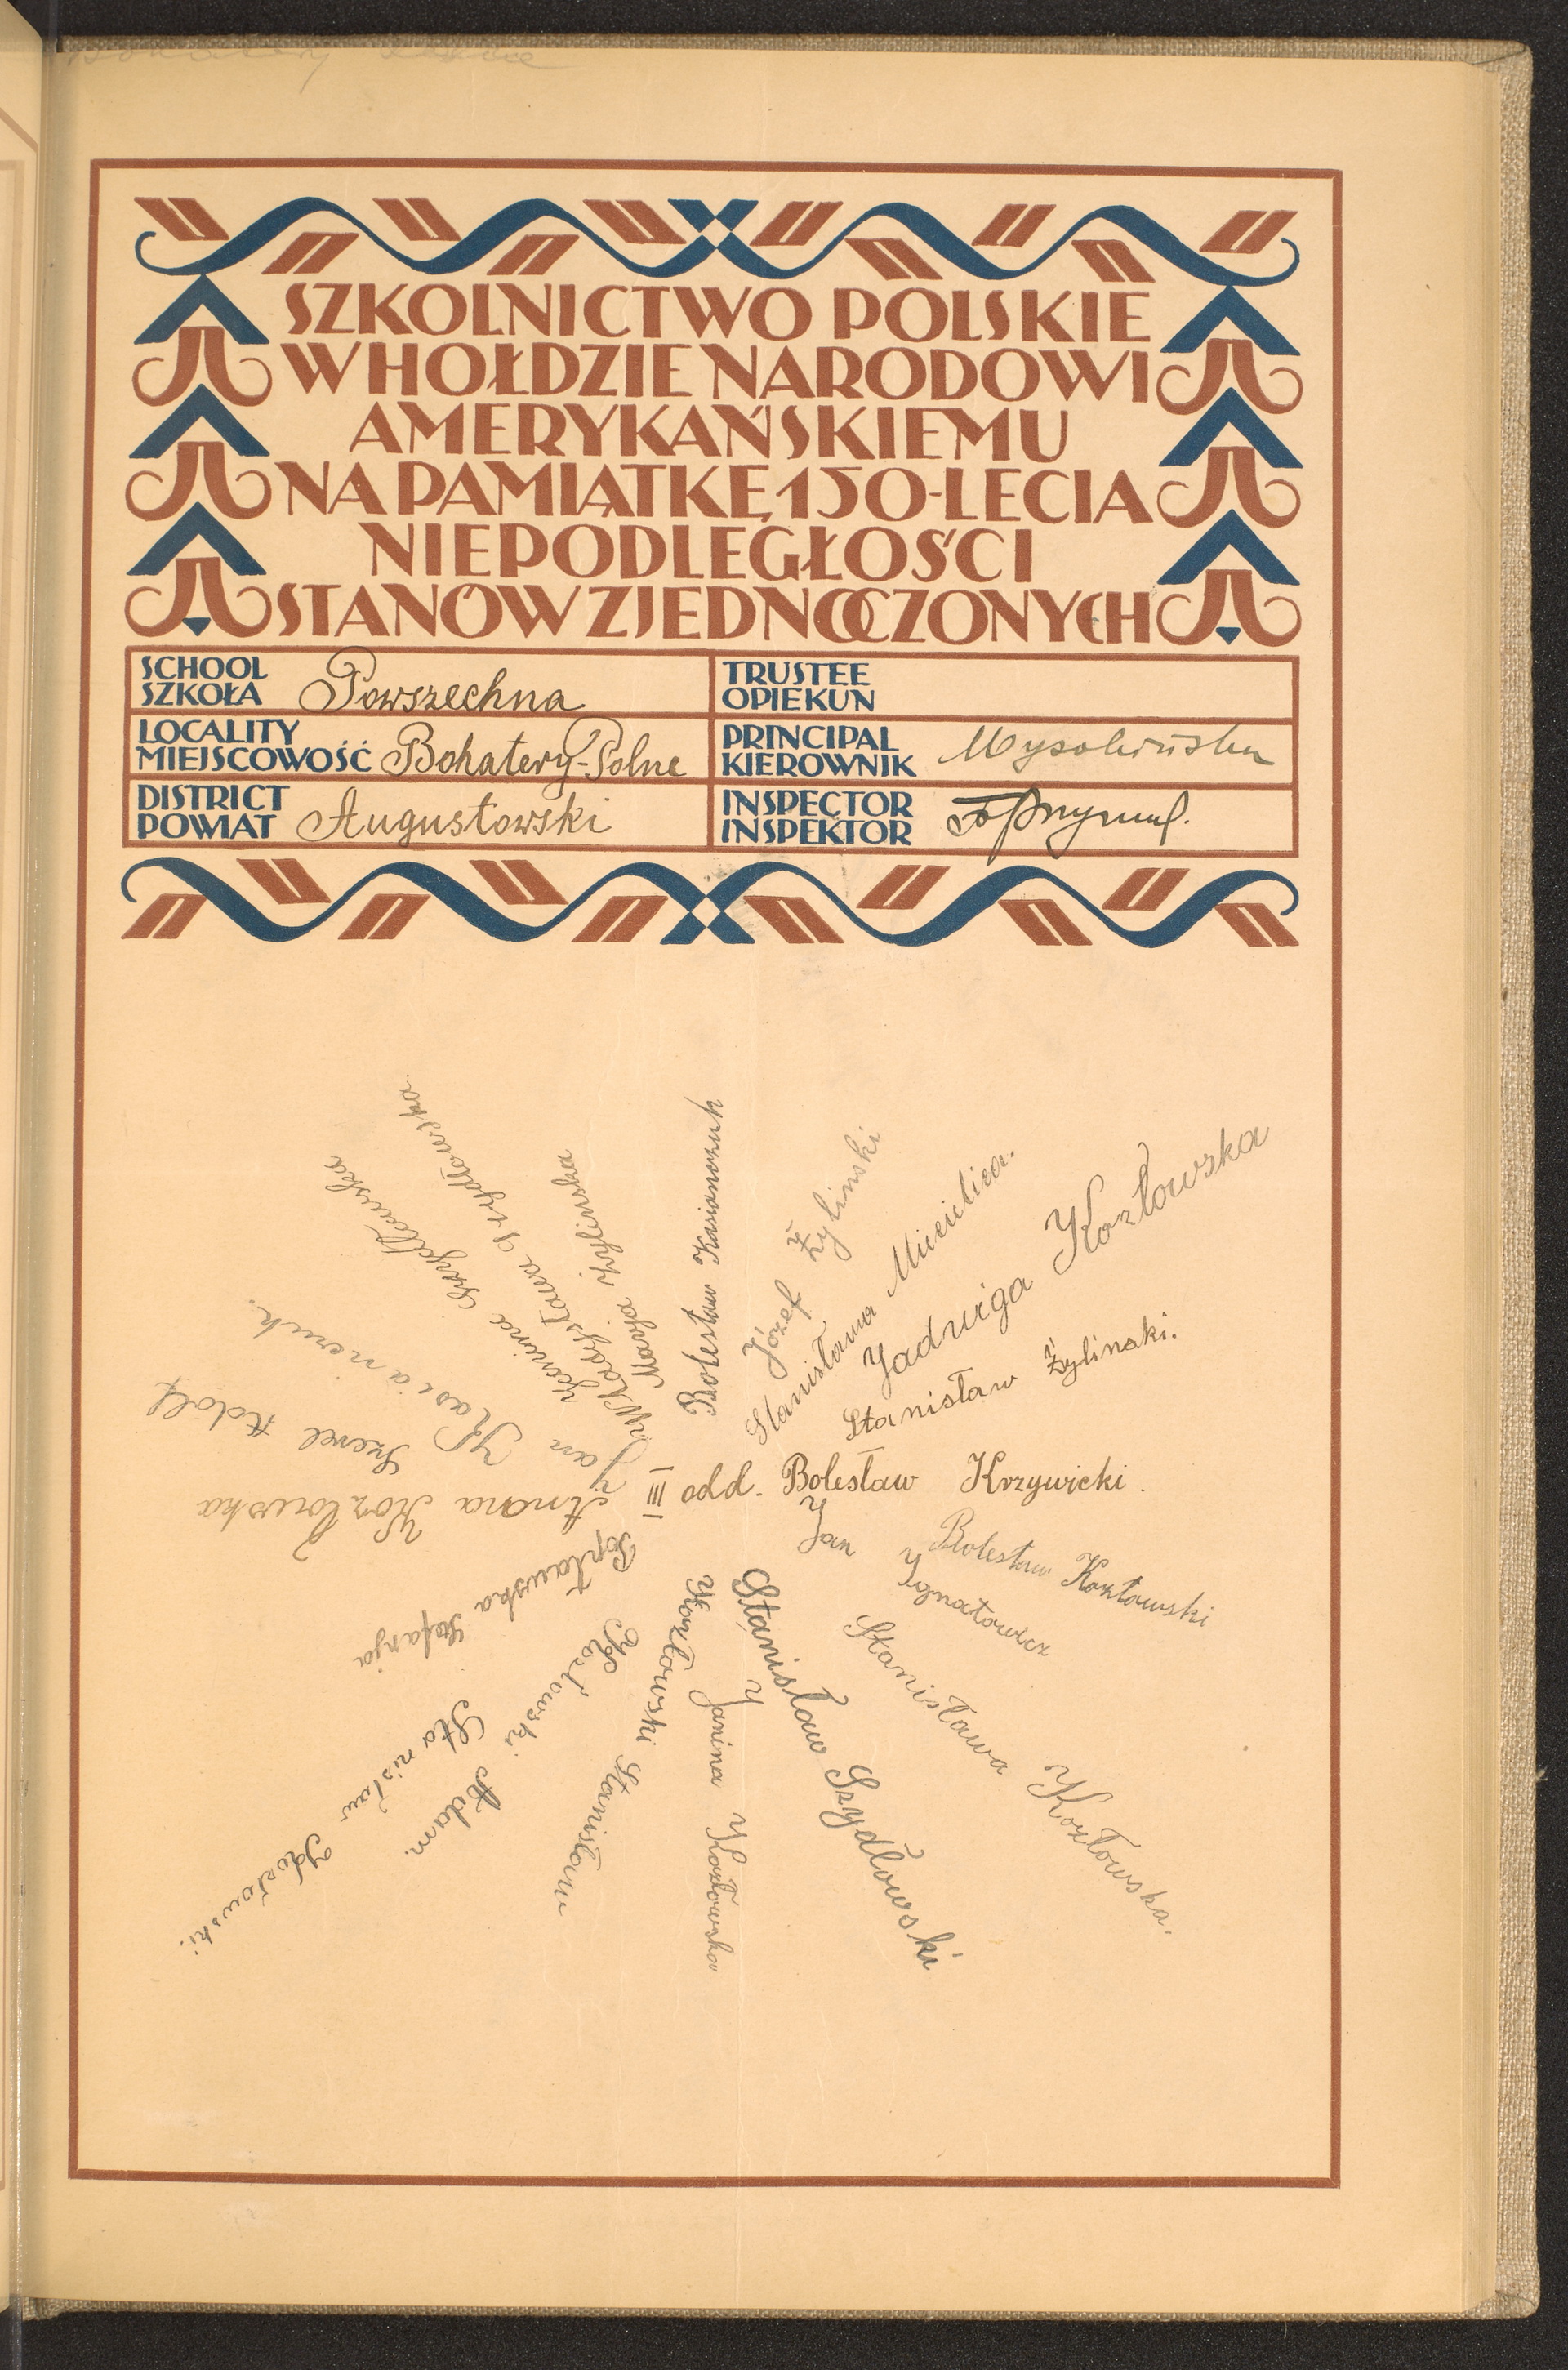 SZKOLNICTWO POLSKIE
W HOŁDZIE NARODOWI
AMERYKAŃSKIEMU
NA PAMIĄTKĘ 150-LECIA
NIEPODLEGŁOŚCI
STANÓW ZJEDNOCZONYCH
SCHOOL
SZKOŁA Powszechna
TRUSTEE
OPIEKUN
LOCALITY
MIEJSCOWOŚĆ Bohatery-Polne
PRINCIPAL
KIEROWNIK
DISTRICT
POWIAT Augustowski
INSPECTOR
INSPEKTOR
III odd. Bolesław Krzywicki.
Stanisław Żylinski.
Jadwiga Kozłowska
Stanisława
Józef Żylinski
Bolesław Kasianczuk
Marja
Władysława Szydłowska.
Janina Szydłowska
Jan
Adolf
Anna Kozłowska
Popławska Stefanja
Stanisław Kozłowski.
Kozłowski Adam.
Kozłowski Stanisław
Janina Kozłowska
Stanisław Szydłowski
Stanisława Kozłowska.
Jan Ignatowicz
Bolesław Kozłowski